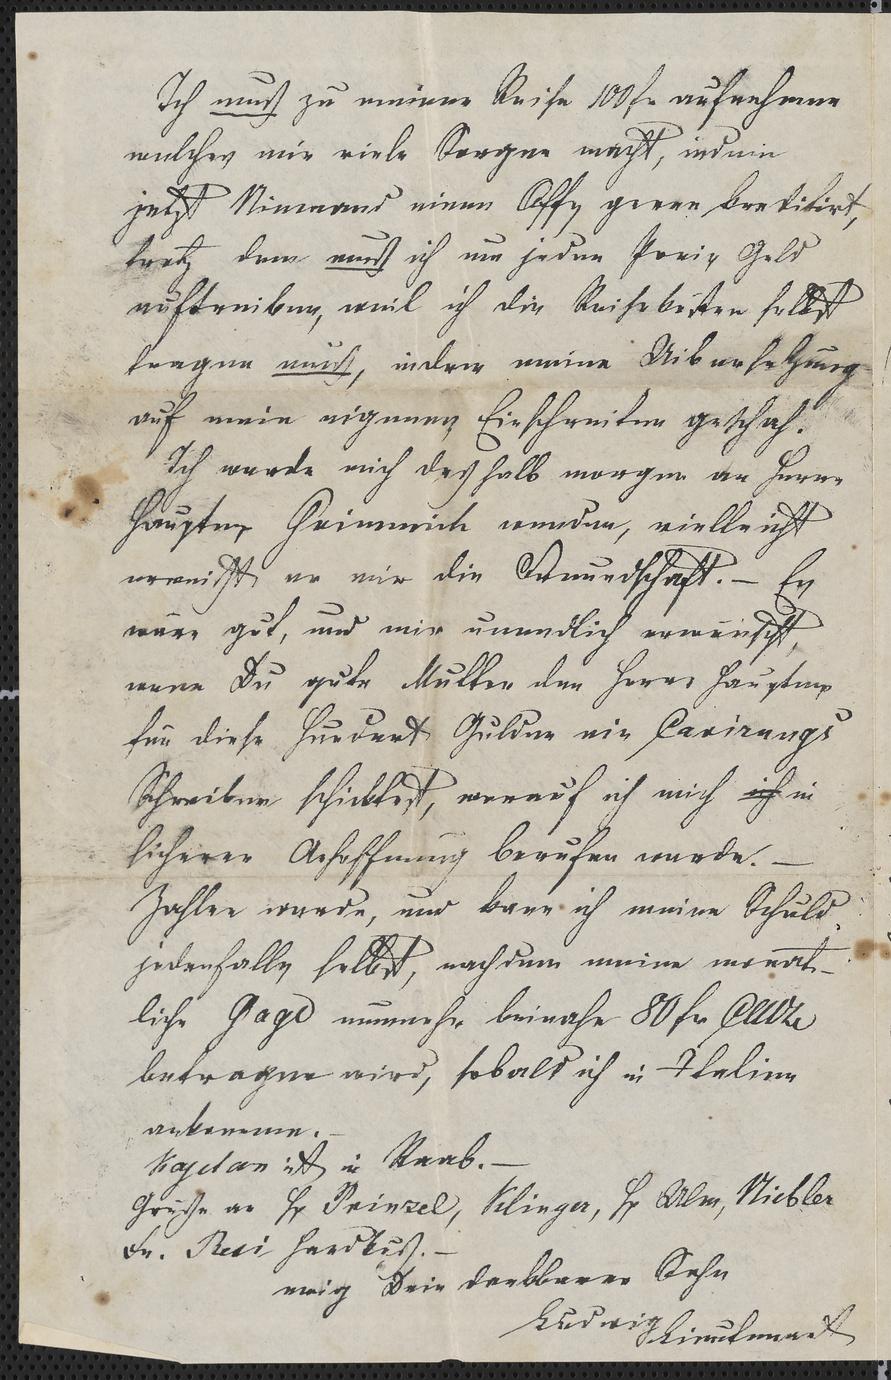 Ich muß zu meiner Reise 100 fr aufnehmen
welches mir viele Sorgen macht, indem
jetzt Niemand einem Offz gerne kreditirt,
trotz dem muß ich um jeden Preis Geld
auftreiben, weil ich die Reisekosten selbst
tragen muß, indem meine Uibersetzung
auf mein eigenes Einschreiten geschah.
Ich werde mich deßhalb morgen an Herrn
Hauptm wenden, vielleicht
erweißt er mir die Freundschaft. – Es
wäre gut, und mir unendlich erwünscht,
wenn Du gute Mutter den Herrn Hauptm
für diese Hundert Gulden ein Cavirungs
Schreiben schicktest, worauf ich mich ich in
sicherer Anhoffnung berufen werde. –
Zahlen werde, und kann ich meine Schuld
jedenfalls selbst, nachdem meine monat-
liche Gage nunmehr beinahe 80 fr CMze
betragen wird, sobald ich in Italien
ankomme. –
Kajetan ist in Raab. –
Grüße an Hr Prinzel, Klinger, Hr Ulm, Niebler
Fr. Resi
ewig Dein dankbarer Sohn
Ludwig Lieutenant